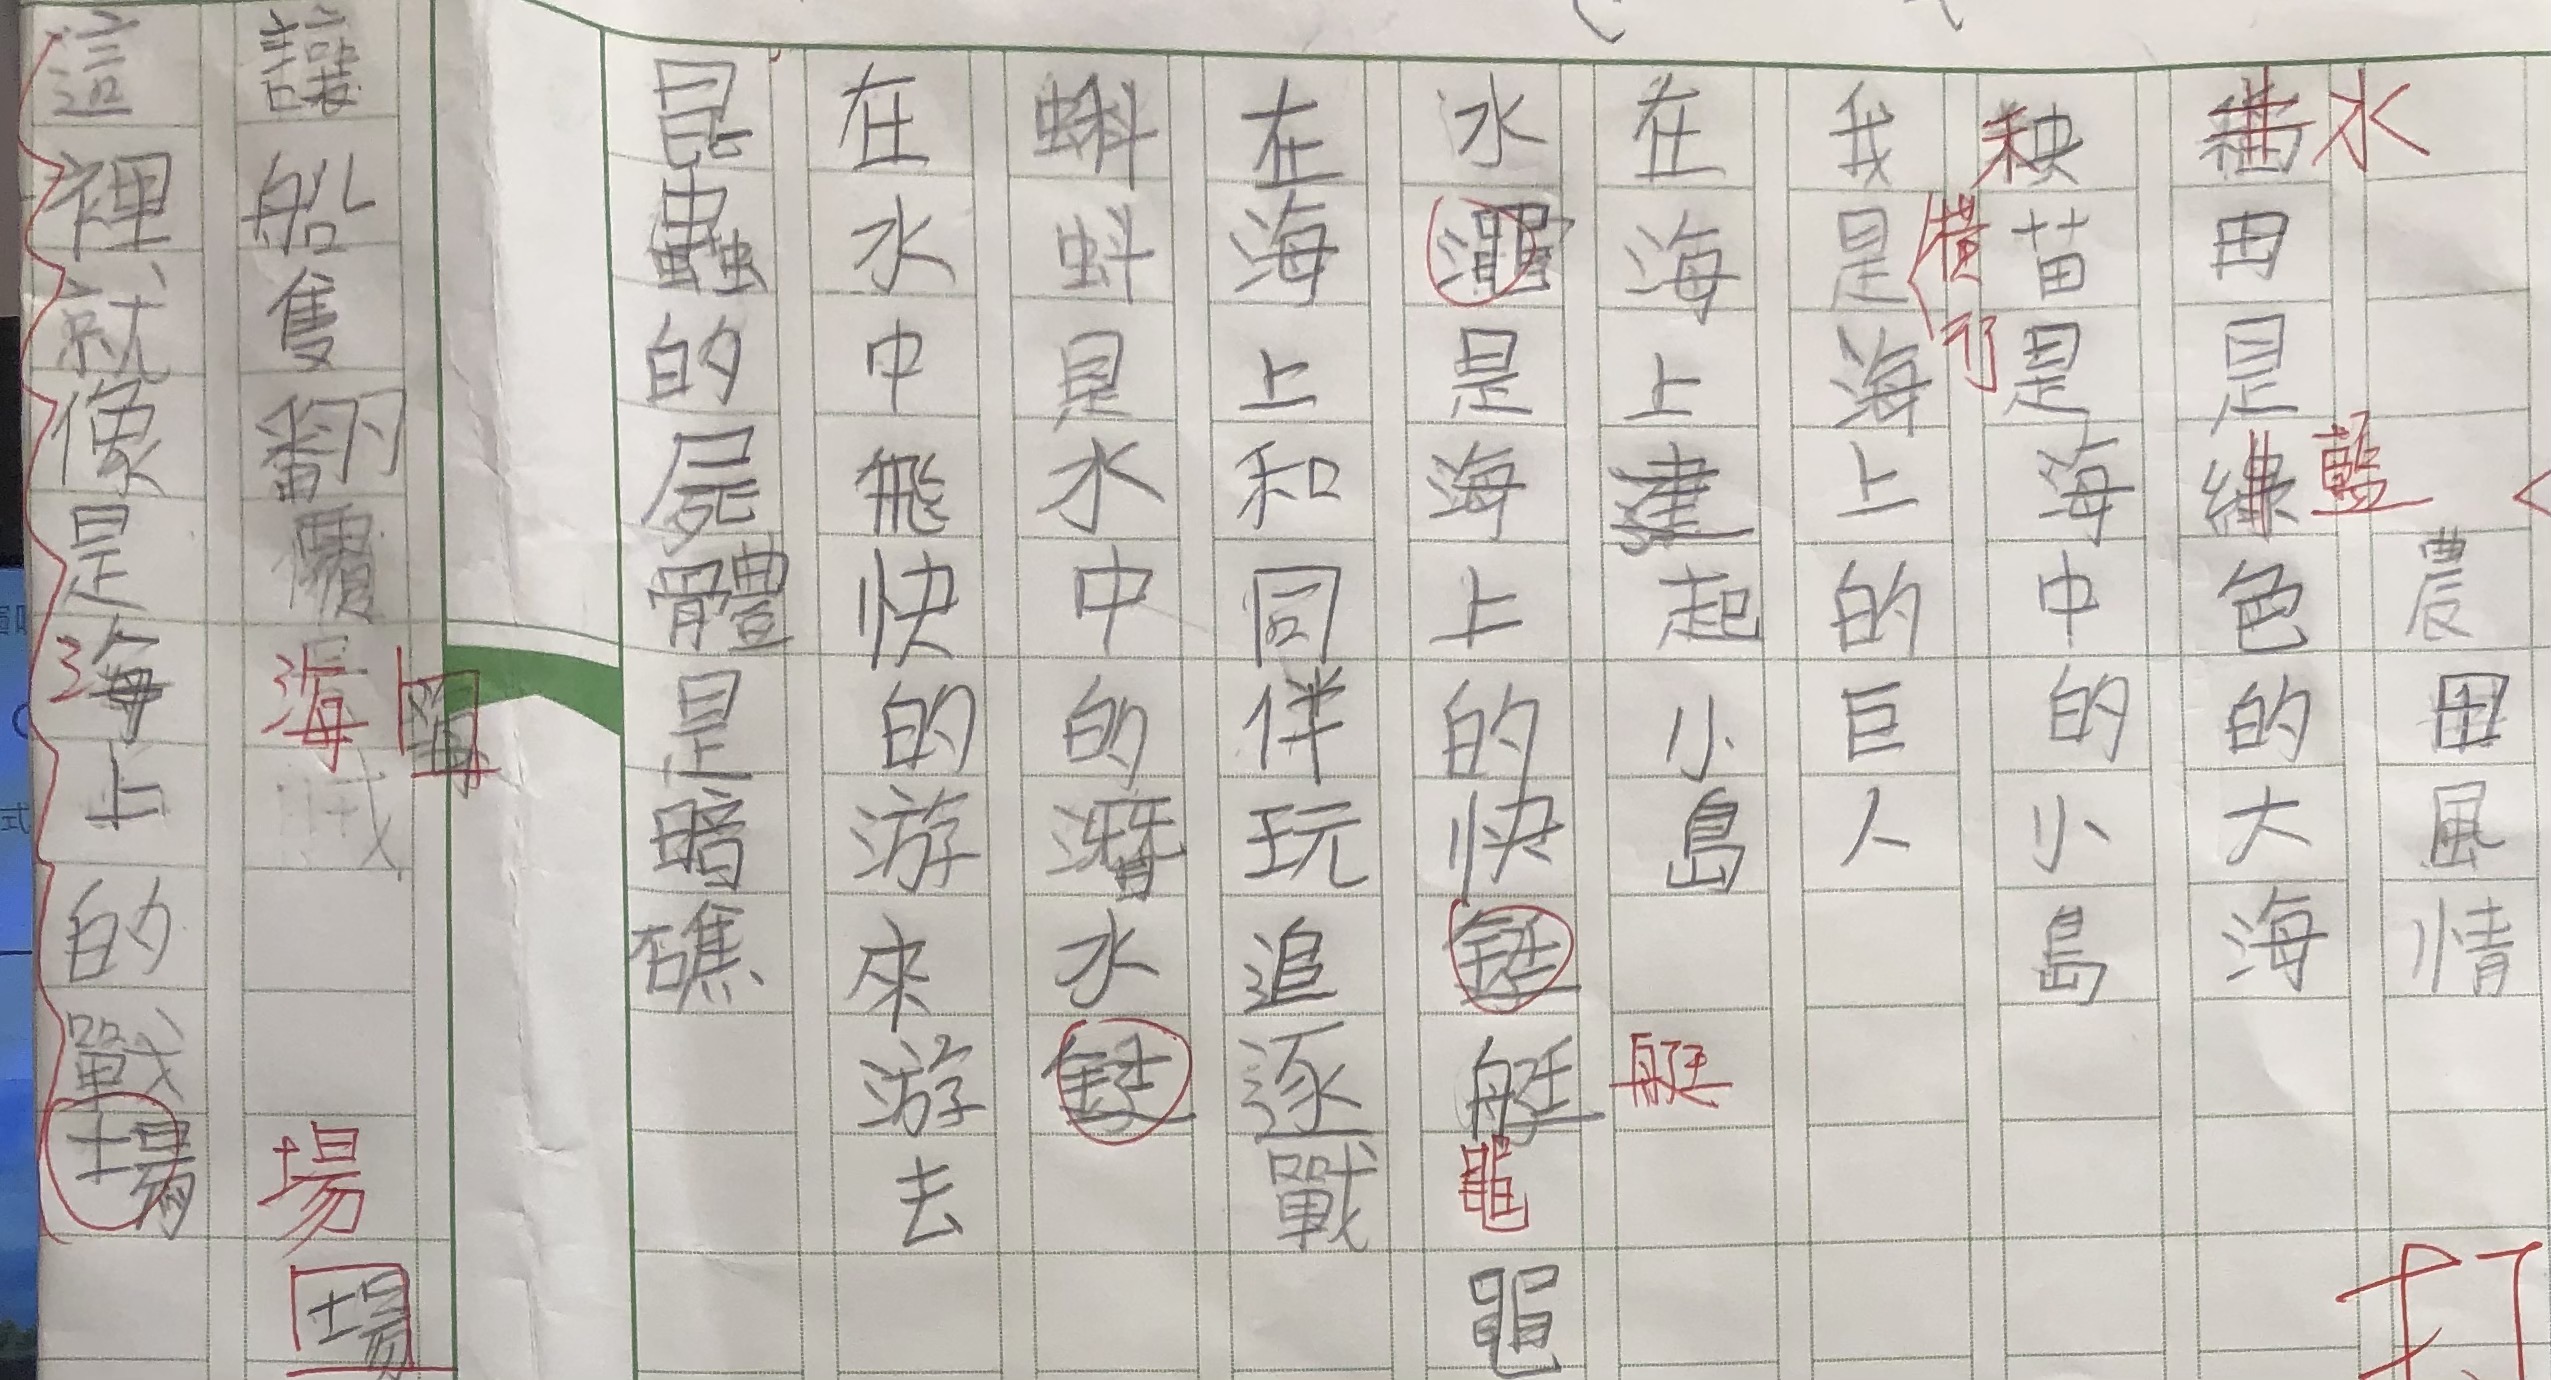 農田風情
水
稻田是綠色的大海
藍
秧苗是海中的小島
橫行
我是海上的巨人
在海上建起小島
水澠是海上的快錠艇
艇
黽
黽
在海上和同伴玩追逐戰
蝌蚪是水中的潛水錠
在水中飛快的游來游去
昆蟲的屍體是暗礁
讓船隻翻覆
海
海
場
場
這裡就像是海上的戰場
打